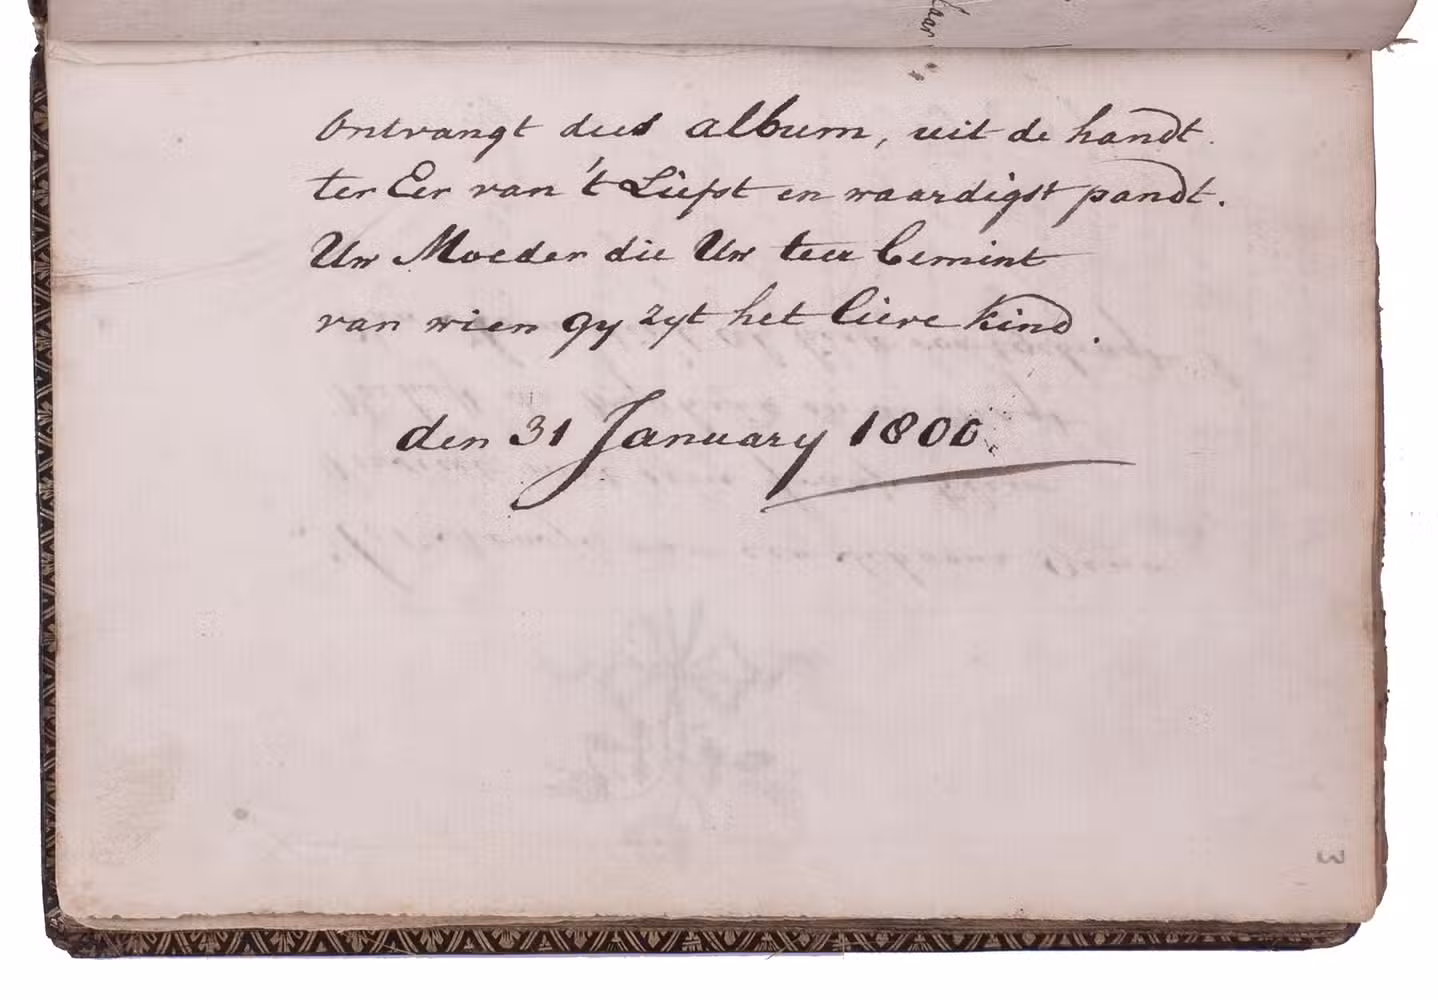 laar
Ontvangt deet album, uit de handt.
ter Eer van 't Liefst en waardigst pandt.
Uw Moeder die Uw teer bemint
van wien gy zyt het lieve kind.
den 31 January 1800
3